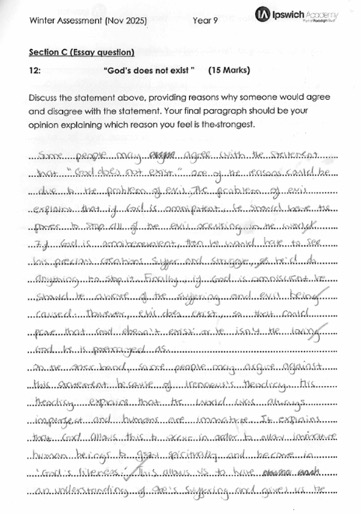 Winter Assessment (Nov 2025) Year 9 Ipswich Academy
Section C (Essay question)
12: "God's does not exist" (15 Marks)
Discuss the statement above, providing reasons why someone would agree
and disagree with the statement. Your final paragraph should be your
opinion explaining which reason you feel is the strongest.
Some people may agree with the statement
that "God does not exist." one of the reasons could be
due to the problem of evil. The problem of evil
explains that if God is omnipotent he should have the
power to stop all of the evil occurring in the world.
If God is omnibenevolent then he would hate to see
his precious creations suffer and struggle, so he'd do
anything to stop it. Finally if God is omniscient he
should be aware of the suffering and evil being
caused. However, evil does exist, so that could
prove that God doesn't exist or he isn't the loving
God he is portrayed as.
On the other hand, some people may argue against
this statement because of Irenaeus's theodicy. This
theodicy explains that the world was always
imperfect and humans are immature. It explains
that God allows this to occur in order to allow immature
human beings to grow spiritually and become in
'God's likeness'. This allows us to have
an understanding of suffering and gives us the